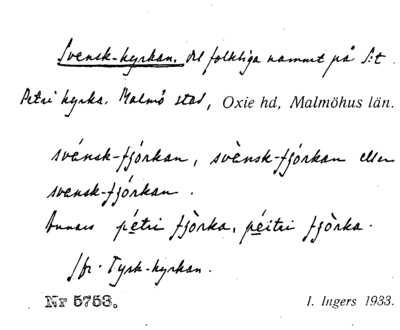 Svensk-kyrkan. det folkliga namnet på S:t
Petri kyrka. Malmö stad, Oxie hd, Malmöhus län.
svánsk-fjórkan, svènsk-fjórkan eller
svensk-fjórkan.
Annars pétri fjòrka, péitri fjòrka.
Jfr. Tysk-kyrkan.
Nr 5753. I. Ingers 1933.